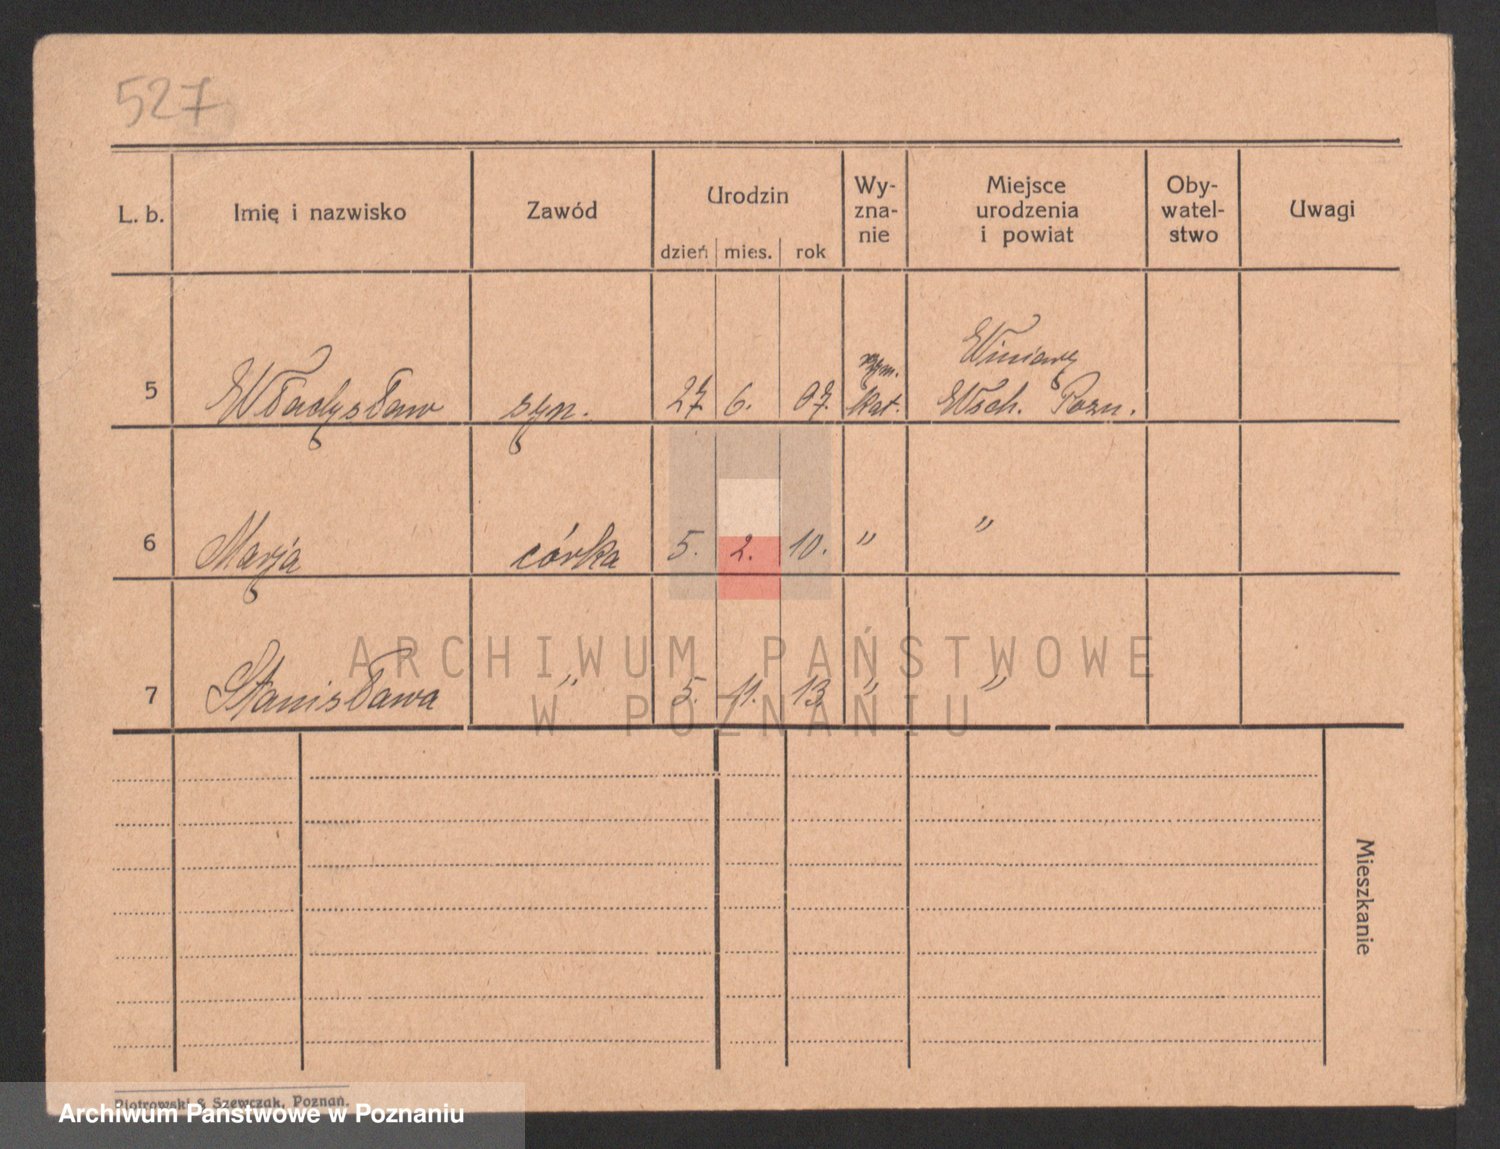 527
L. b. Imię i nazwisko Zawód Urodzin dzień mies. rok Wy-zna-nie Miejsce urodzenia i powiat Oby-watel-stwo Uwagi
5 Władysław syn. 27. 6. 07. rzym. kat. Winiary Wsch. Pozn.
6 Marja córka 5. 2. 10. " "
7 Stanisława " 5. 11. 13. " "
ARCHIWUM PAŃSTWOWE
W POZNANIU
Mieszkanie
Piotrowski & Szewczak, Poznań.
Archiwum Państwowe w Poznaniu